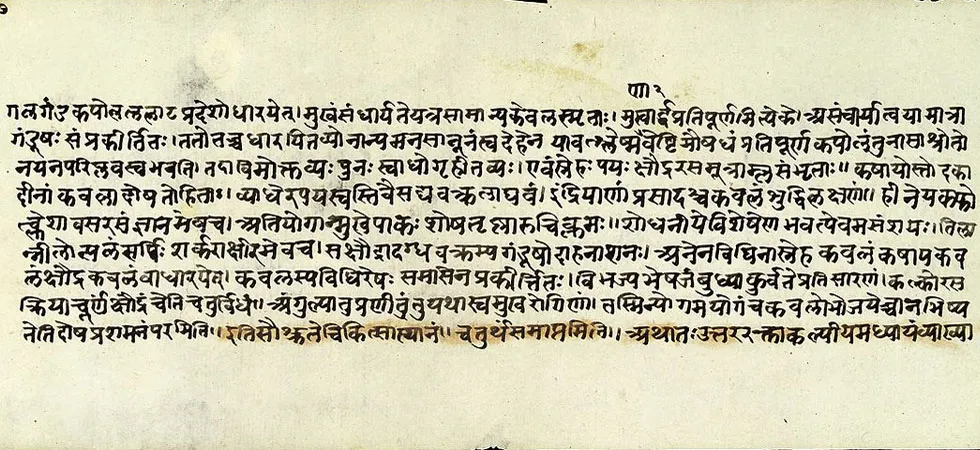 ण्ग २
गलगंडकपोलललाटप्रदेशोधारयेत्। मुखंसंधार्यतेयत्रसामान्यकेवलस्मृताः। मुखार्द्धप्रतिपूर्णमित्येके। अ्यसंचार्यातुयामात्रा
गंडूषः संप्रकीर्तितः। ततोवच्चधारयितव्योनान्यमनसानूनंत्वदेहेन यावत्श्लेष्मैवेष्टिमौषधं प्रतिपूर्णकपोलंतुनासाश्रोतो
नयनपरिप्लवस्वभवति। तदाविमोक्तव्यः पुनःस्वाधोगृहीतव्यः। एवंस्नेहःपयःक्षौद्ररसमूत्राम्लसंभृताः॥ कषायोस्तोदका
दीनां कवलादोषतोहिताः। व्याधेरपयस्वस्तिवैसद्यवक्त्रलाघवं। इंद्रियाणां प्रसादश्चकवलेशुद्धिलक्षणं। हीनेयकफो
त्क्लेशावसरसंज्ञानमेवच। अतियोगान्मुखेपाकः शोषतृष्णारुचिक्लमः॥ शोधनीयेविशेषेण भवत्येवमसंशयः। तिला
न्नीलोत्पलंसर्पिः शर्कराक्षीरमेवच। सक्षौद्रादग्धवक्त्रस्यगंडूषोदाहनाशनः। अनेनविधिनास्नेह कवलंकषायकव
लंक्षौद्रकवलंवाधारयेत्। कवलस्यविधिरेषः समासेनप्रकीर्त्तितः। विभज्यभेषजंबुध्याकुर्वतेप्रतिसारणं। कल्कोरस
क्रियाचूर्णक्षौद्रंचेतिचतुर्द्विधं। अंगुल्यातुप्रणीतंतुयथास्वमुखरोगिणां। तस्मिन्योगमयोगंचकवलोभोजयेच्चानभिष्य
नेतिदोषप्रशमनंपरमिति। इतिसौश्रुतेचिकित्सास्थानं॥ चतुर्थंसमाप्तमिति॥ अथातःउत्तररक्ताकल्पीयमध्यायंव्याख्या